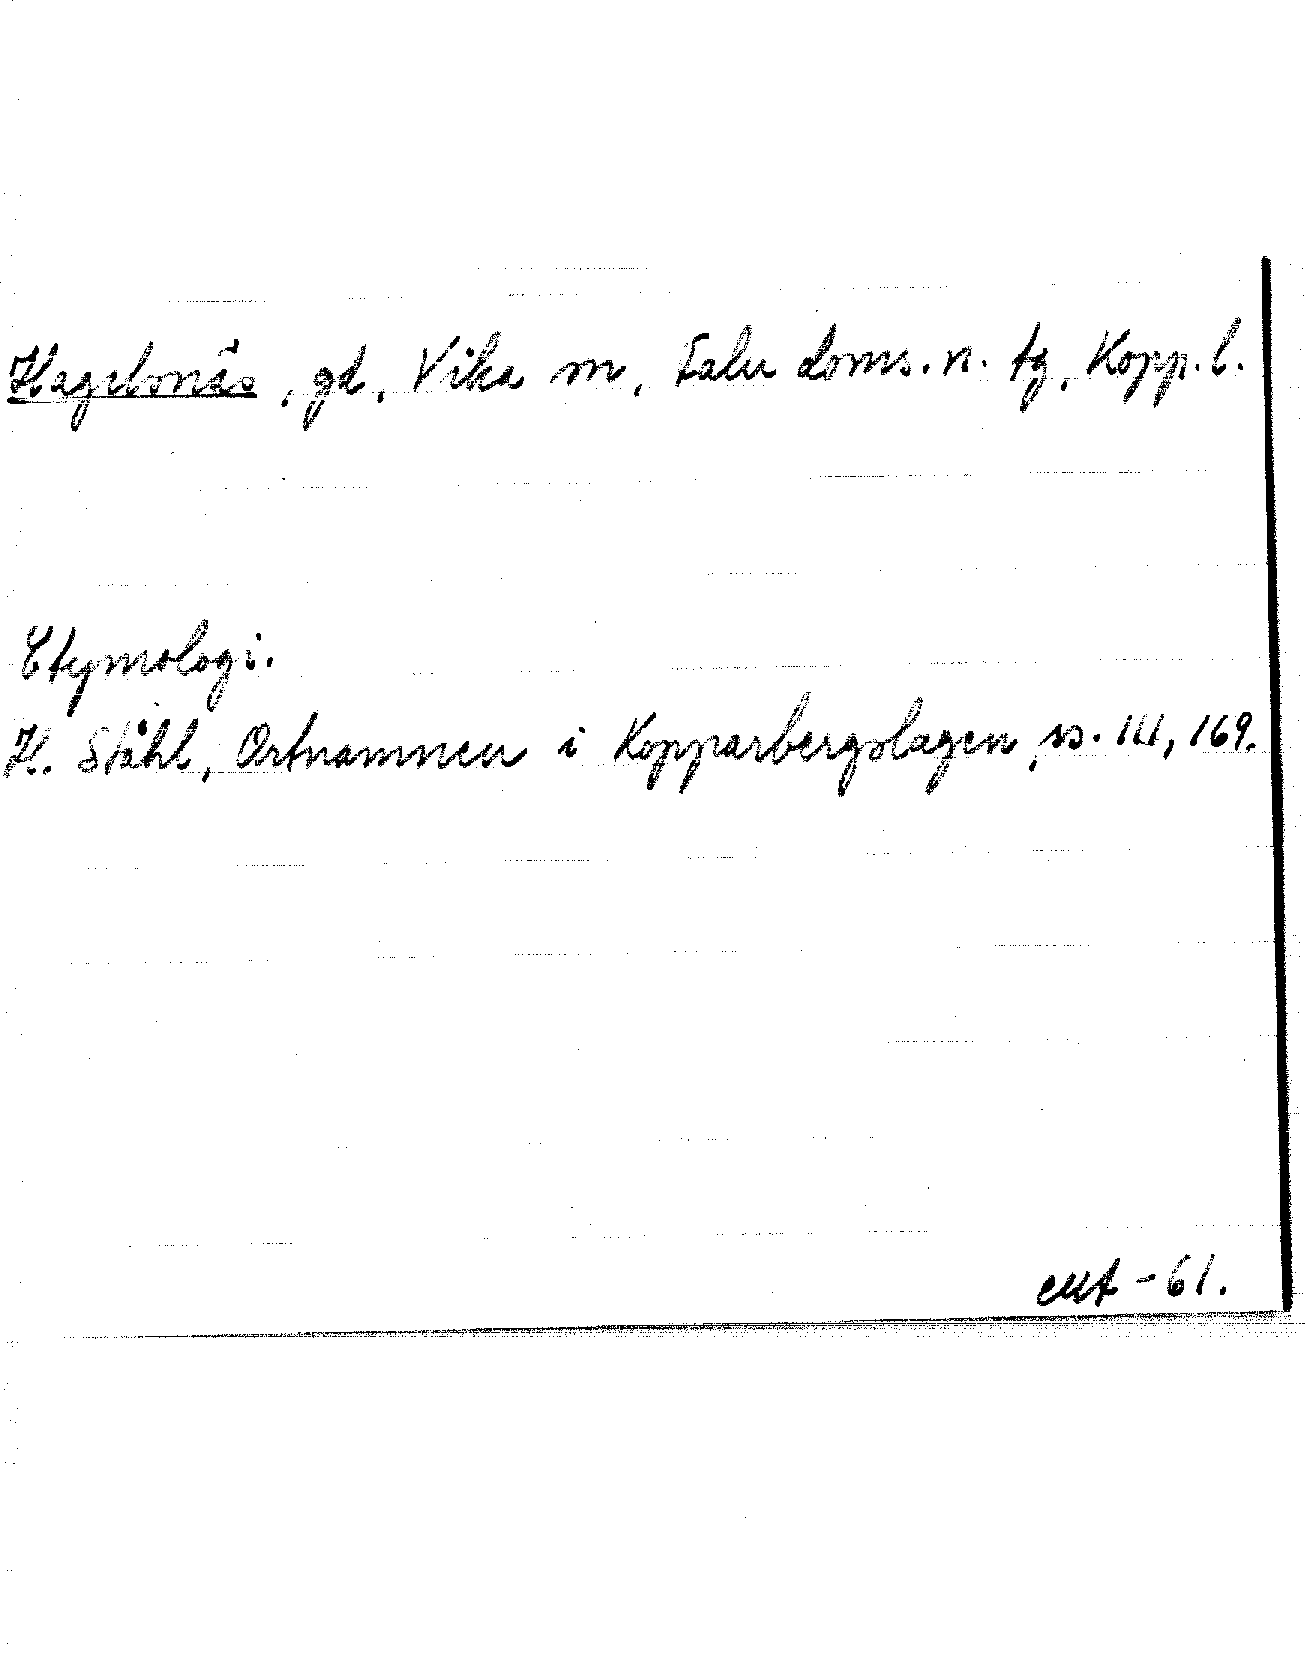 Hagelsnäs, gd, Vika sn, Falu doms. n. tg, Kopp. l.
Etymologi.
H. Ståhl, Ortnamnen i Kopparbergslagen, ss. 141, 169.
-61.